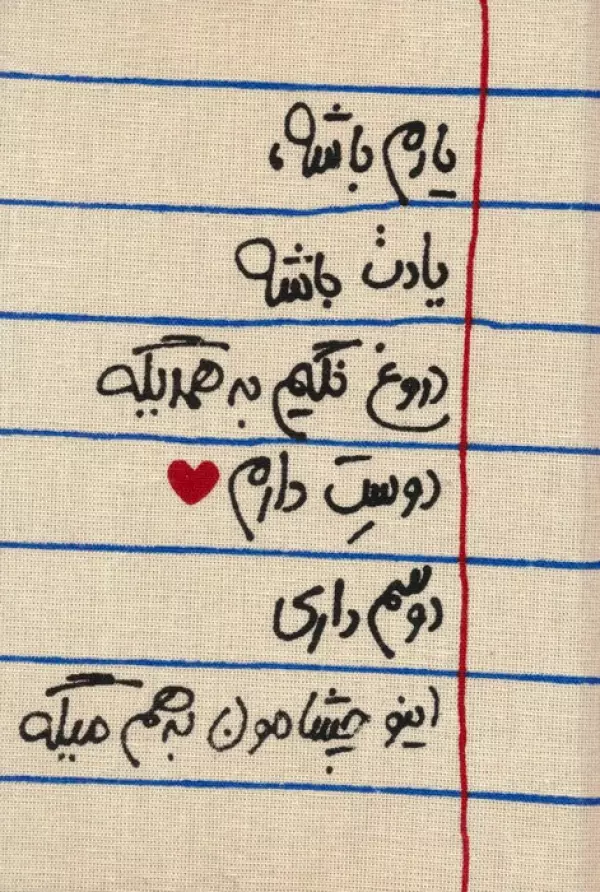 یادم باشه،
یادت باشه
دروغ نگیم به همدیگه
دوسِت دارم ♥
دوسم داری
اینو چشامون به هم میگه